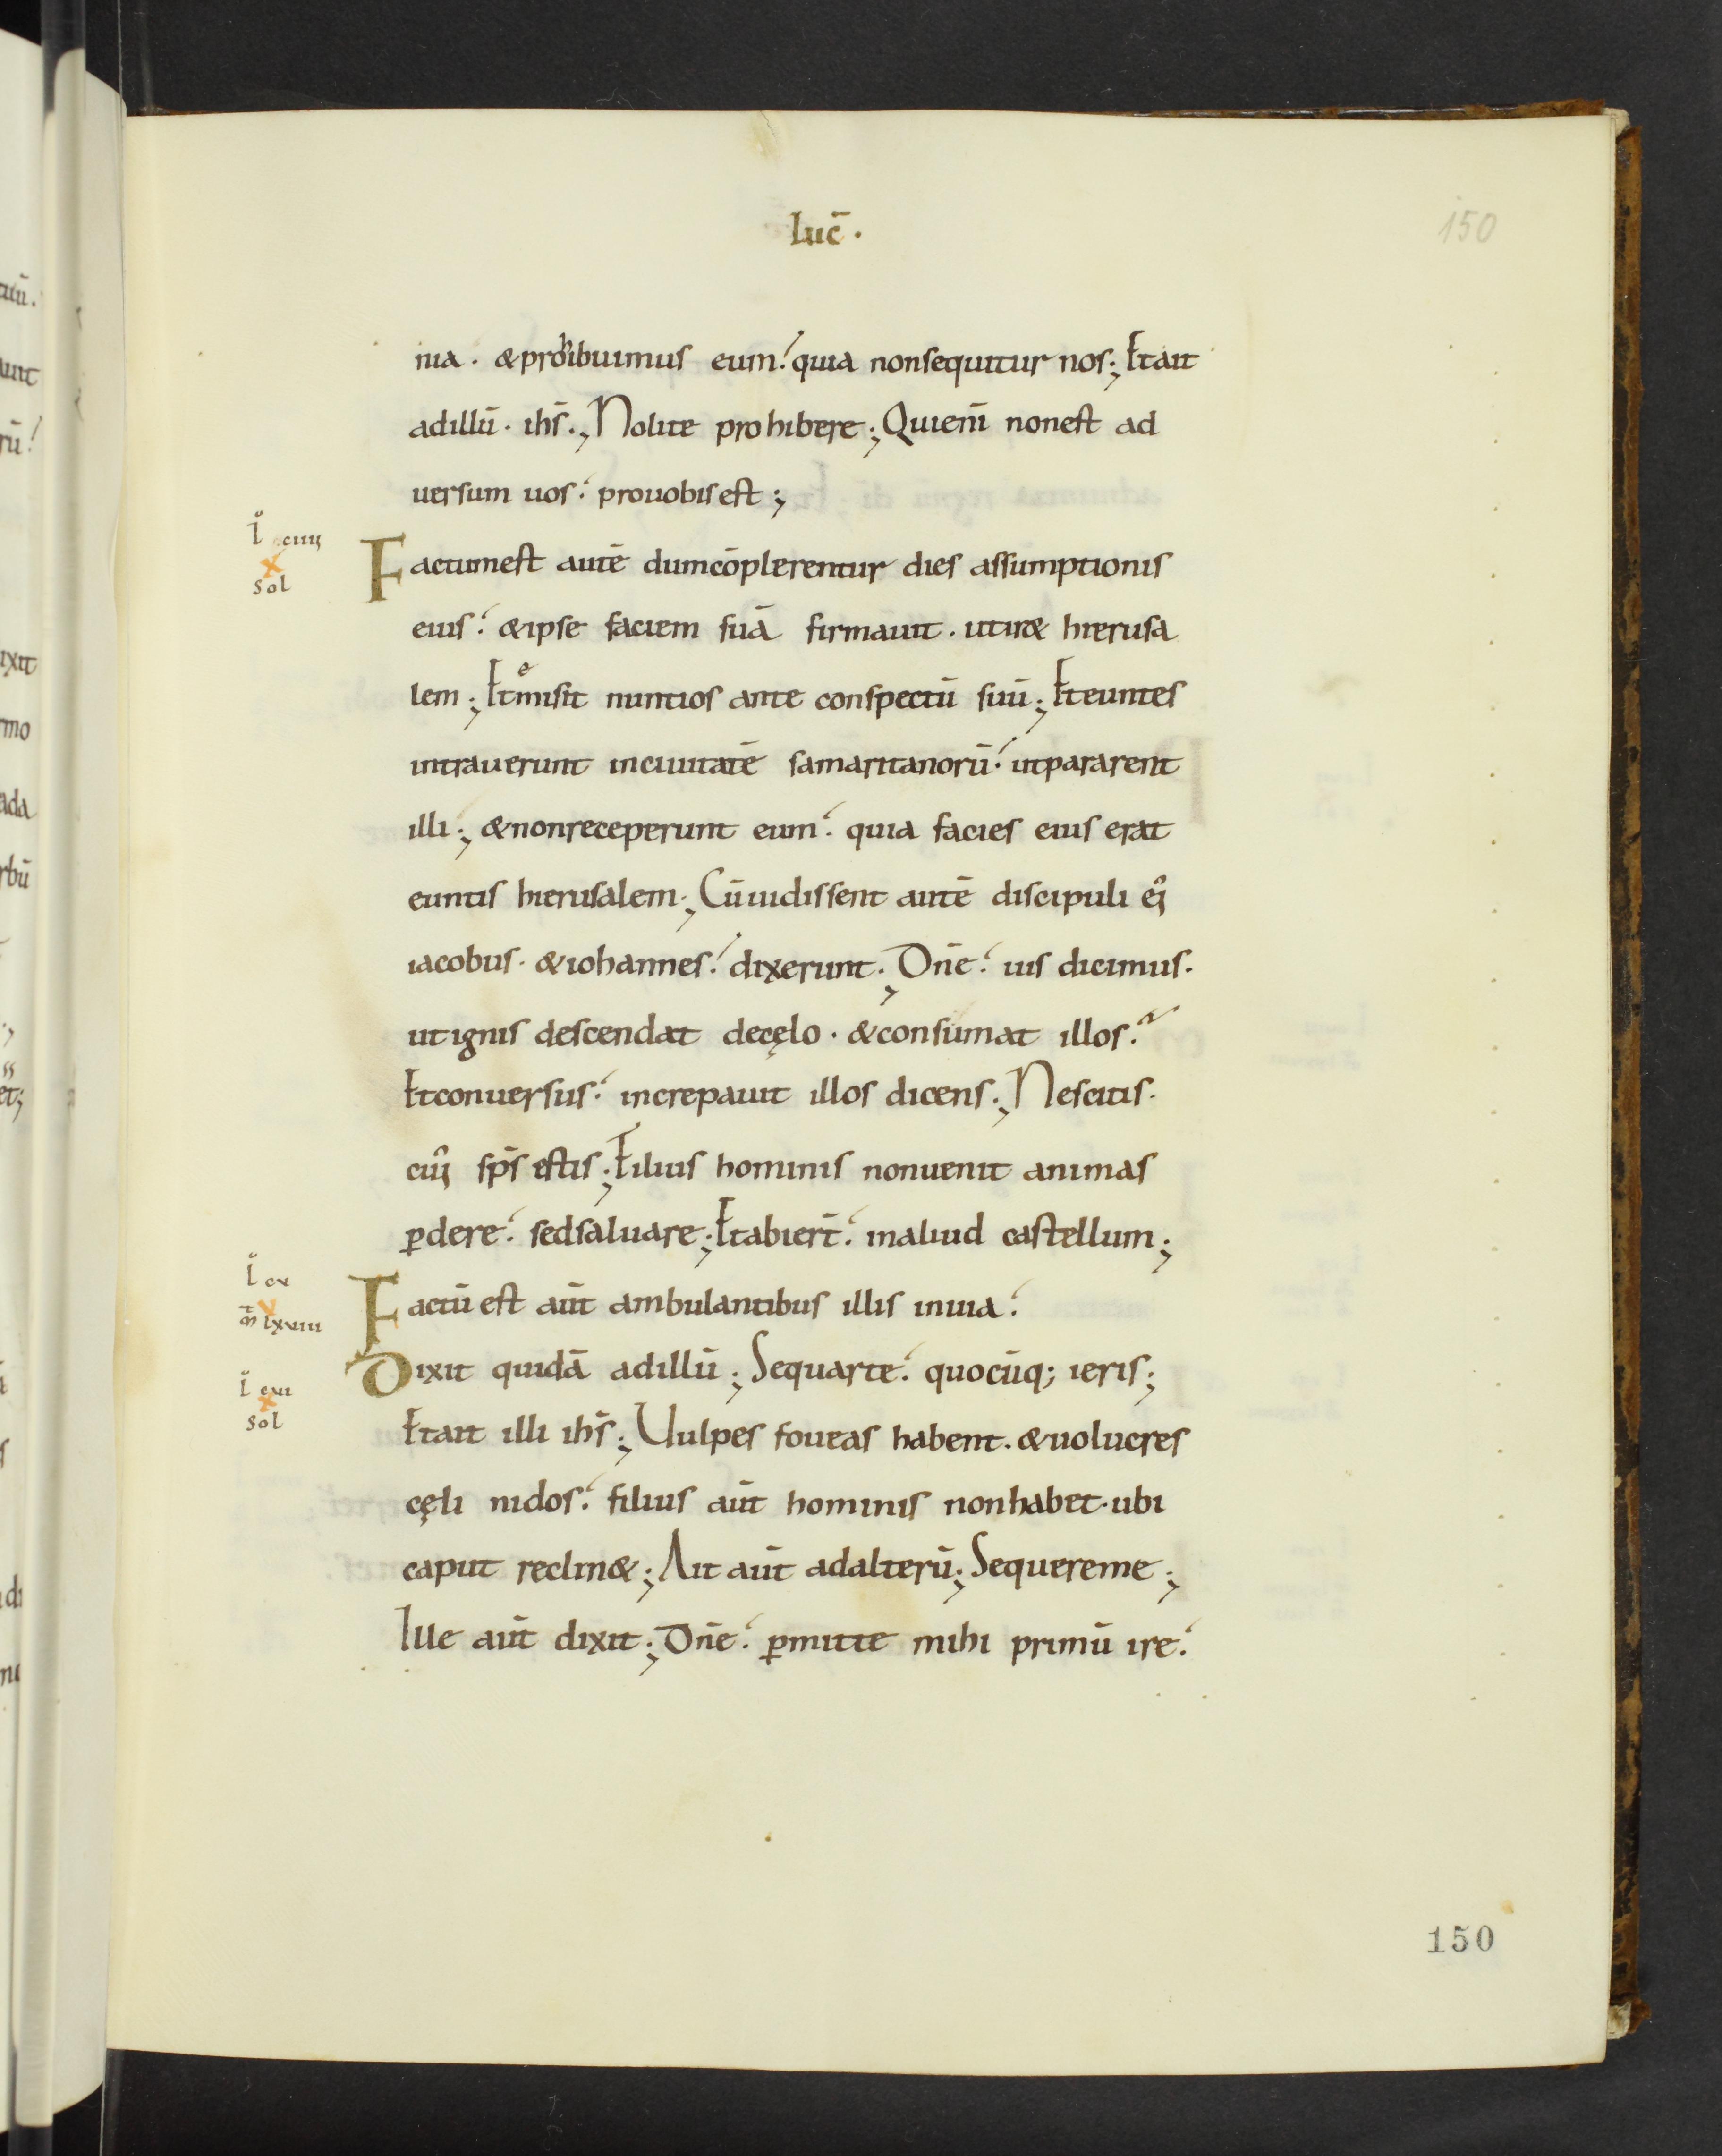 150
Luc̄.
nia. & prohibuimus eum. quia nonsequitur nos; Etait
adillū. ihs̄; Nolite prohibere; Quieni̅ nonest ad
uersum uos. prouobisest;
l̊ cuiij
sol
Factumest autē dumcōplerentur dies assumptionis
eius. &ipse faciem suā firmauit. utir& hierusa
lem; Etmisit nuntios ante conspectū suū; Eteuntes
intrauerunt inciuitatē samaritanorū. utpararent
illi; &nonreceperunt eum. quia facies eius erat
euntis hierusalem; Cūuidissent autē discipuli ei᷒
iacobus. &iohannes. dixerunt; Dn̄e. uis dicimus.
utignis descendat decęlo. &consumat illos.
Etconuersus. increpauit illos dicens; Nescitis.
cui᷒ sp̄s estis; Filius hominis nonuenit animas
ꝑdere. sedsaluare; Etabier̄t. inaliud castellum;
l̊ cx
m̄ lxviii
Factū est aūt ambulantibus illis inuia.
l̊ cxi
sol
Dixit quidā adillū; Sequarte. quocūq; ieris;
Etait illi ihs̄; Uulpes foueas habent. &uolucres
cęli nidos. filius aūt hominis nonhabet. ubi
caput reclin&; Ait aūt adalterū; Sequereme;
Ille aūt dixit; Dn̄e. ꝑmitte mihi primū ire.
150